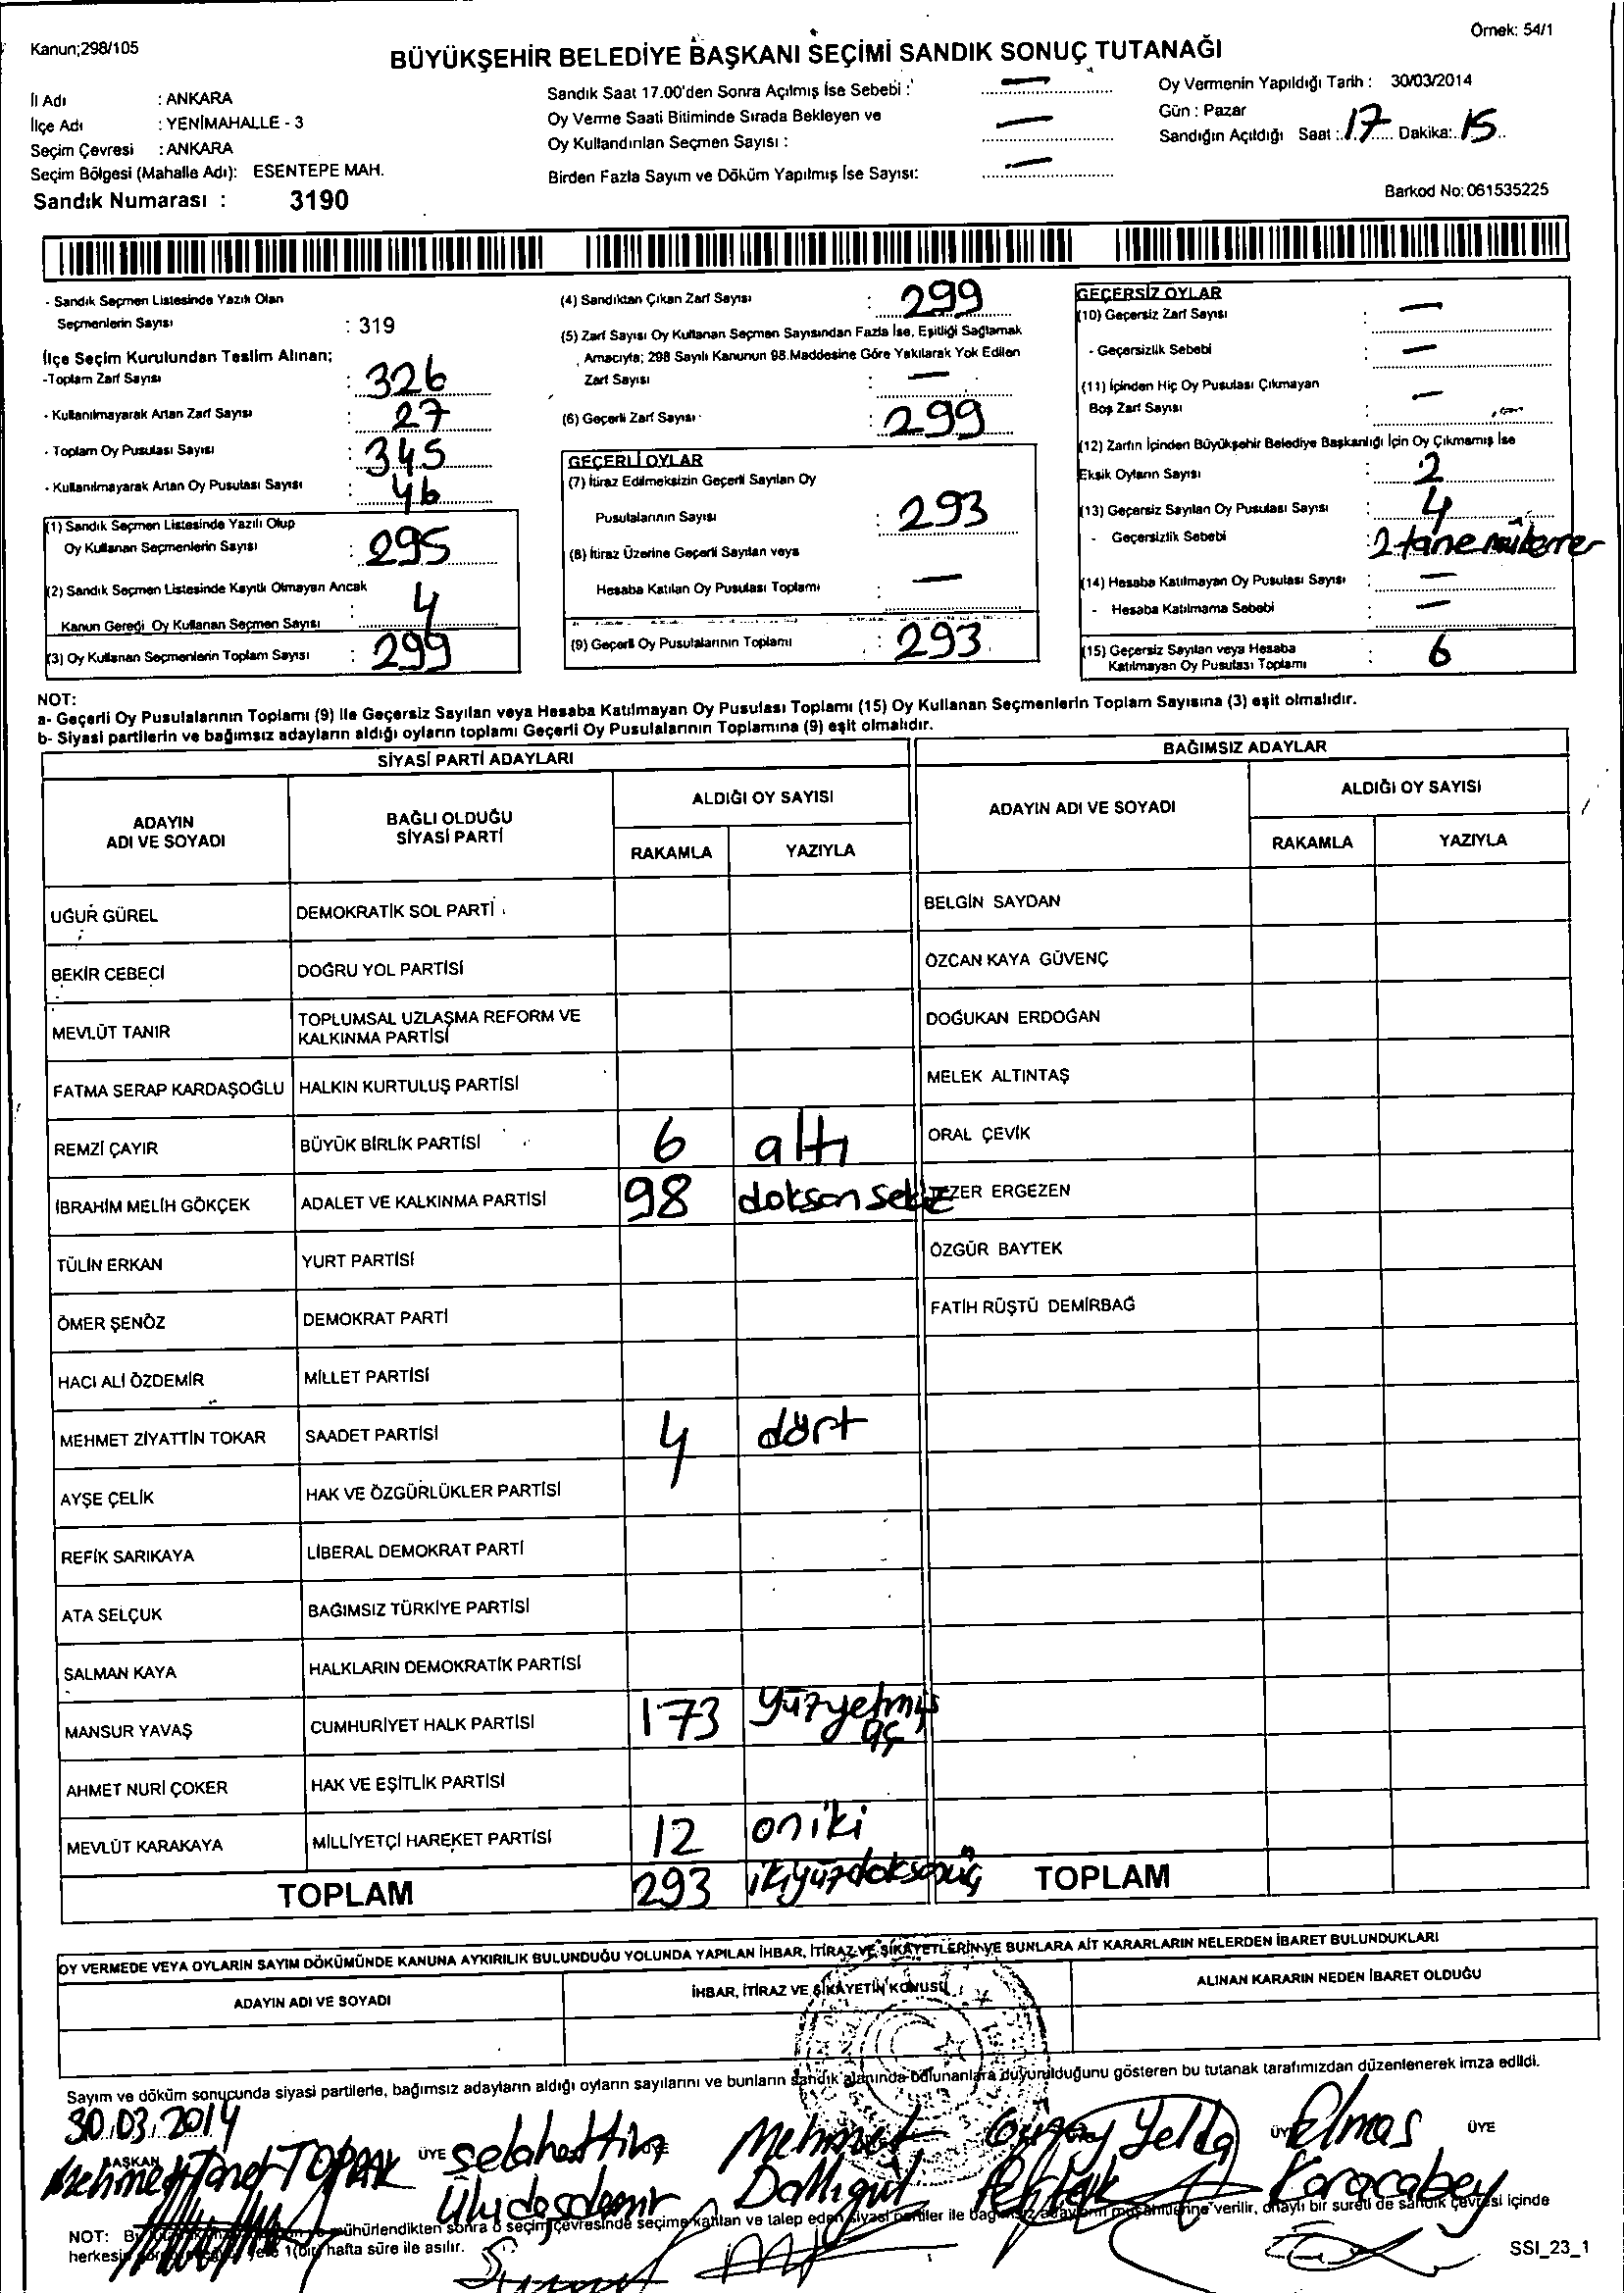 Kanun;298/105
Örnek: 54/1
BÜYÜKŞEHİR BELEDİYE BAŞKANI SEÇİMİ SANDIK SONUÇ TUTANAĞI
İl Adı : ANKARA
İlçe Adı : YENİMAHALLE - 3
Seçim Çevresi : ANKARA
Seçim Bölgesi (Mahalle Adı): ESENTEPE MAH.
Sandık Numarası : 3190
Sandık Saat 17.00'den Sonra Açılmış İse Sebebi : —
Oy Verme Saati Bitiminde Sırada Bekleyen ve
Oy Kullandırılan Seçmen Sayısı : —
Birden Fazla Sayım ve Döküm Yapılmış İse Sayısı: —
Oy Vermenin Yapıldığı Tarih : 30/03/2014
Gün : Pazar
Sandığın Açıldığı Saat : 17 Dakika: 15
Barkod No: 061535225
- Sandık Seçmen Listesinde Yazılı Olan
Seçmenlerin Sayısı : 319
İlçe Seçim Kurulundan Teslim Alınan;
-Toplam Zarf Sayısı : 326
- Kullanılmayarak Artan Zarf Sayısı : 27
- Toplam Oy Pusulası Sayısı : 345
- Kullanılmayarak Artan Oy Pusulası Sayısı : 46
(1) Sandık Seçmen Listesinde Yazılı Olup
Oy Kullanan Seçmenlerin Sayısı : 295
(2) Sandık Seçmen Listesinde Kayıtlı Olmayan Ancak
Kanun Gereği Oy Kullanan Seçmen Sayısı : 4
(3) Oy Kullanan Seçmenlerin Toplam Sayısı : 299
(4) Sandıktan Çıkan Zarf Sayısı : 299
(5) Zarf Sayısı Oy Kullanan Seçmen Sayısından Fazla İse, Eşitliği Sağlamak
Amacıyla; 298 Sayılı Kanunun 98.Maddesine Göre Yakılarak Yok Edilen
Zarf Sayısı : —
(6) Geçerli Zarf Sayısı : 299
GEÇERLİ OYLAR
(7) İtiraz Edilmeksizin Geçerli Sayılan Oy
Pusulalarının Sayısı : 293
(8) İtiraz Üzerine Geçerli Sayılan veya
Hesaba Katılan Oy Pusulası Toplamı : —
(9) Geçerli Oy Pusulalarının Toplamı : 293
GEÇERSİZ OYLAR
(10) Geçersiz Zarf Sayısı : —
- Geçersizlik Sebebi : —
(11) İçinden Hiç Oy Pusulası Çıkmayan
Boş Zarf Sayısı : —
(12) Zarfın İçinden Büyükşehir Belediye Başkanlığı İçin Oy Çıkmamış İse
Eksik Oyların Sayısı : 2
(13) Geçersiz Sayılan Oy Pusulası Sayısı : 4
- Geçersizlik Sebebi : 2 tane
(14) Hesaba Katılmayan Oy Pusulası Sayısı : —
- Hesaba Katılmama Sebebi : —
(15) Geçersiz Sayılan veya Hesaba
Katılmayan Oy Pusulası Toplamı : 6
NOT:
a- Geçerli Oy Pusulalarının Toplamı (9) ile Geçersiz Sayılan veya Hesaba Katılmayan Oy Pusulası Toplamı (15) Oy Kullanan Seçmenlerin Toplam Sayısına (3) eşit olmalıdır.
b- Siyasi partilerin ve bağımsız adayların aldığı oyların toplamı Geçerli Oy Pusulalarının Toplamına (9) eşit olmalıdır.
SİYASİ PARTİ ADAYLARI
BAĞIMSIZ ADAYLAR
ADAYIN ADI VE SOYADI
BAĞLI OLDUĞU SİYASİ PARTİ
ALDIĞI OY SAYISI
RAKAMLA YAZIYLA
ADAYIN ADI VE SOYADI
ALDIĞI OY SAYISI
RAKAMLA YAZIYLA
UĞUR GÜREL DEMOKRATİK SOL PARTİ BELGİN SAYDAN
BEKİR CEBECİ DOĞRU YOL PARTİSİ ÖZCAN KAYA GÜVENÇ
MEVLÜT TANIR TOPLUMSAL UZLAŞMA REFORM VE KALKINMA PARTİSİ DOĞUKAN ERDOĞAN
FATMA SERAP KARDAŞOĞLU HALKIN KURTULUŞ PARTİSİ MELEK ALTINTAŞ
REMZİ ÇAYIR BÜYÜK BİRLİK PARTİSİ 6 altı ORAL ÇEVİK
İBRAHİM MELİH GÖKÇEK ADALET VE KALKINMA PARTİSİ 98 doksan sekiz ERGEZEN
TÜLİN ERKAN YURT PARTİSİ ÖZGÜR BAYTEK
ÖMER ŞENÖZ DEMOKRAT PARTİ FATİH RÜŞTÜ DEMİRBAĞ
HACI ALİ ÖZDEMİR MİLLET PARTİSİ
MEHMET ZİYATTİN TOKAR SAADET PARTİSİ 4 dört
AYŞE ÇELİK HAK VE ÖZGÜRLÜKLER PARTİSİ
REFİK SARIKAYA LİBERAL DEMOKRAT PARTİ
ATA SELÇUK BAĞIMSIZ TÜRKİYE PARTİSİ
SALMAN KAYA HALKLARIN DEMOKRATİK PARTİSİ
MANSUR YAVAŞ CUMHURİYET HALK PARTİSİ 173 yüzyetmiş üç
AHMET NURİ ÇOKER HAK VE EŞİTLİK PARTİSİ
MEVLÜT KARAKAYA MİLLİYETÇİ HAREKET PARTİSİ 12 oniki
TOPLAM 293 ikiyüzdoksanüç TOPLAM
OY VERMEDE VEYA OYLARIN SAYIM DÖKÜMÜNDE KANUNA AYKIRILIK BULUNDUĞU YOLUNDA YAPILAN İHBAR, İTİRAZ VE ŞİKAYETLERİN VE BUNLARA AİT KARARLARIN NELERDEN İBARET BULUNDUKLARI
ADAYIN ADI VE SOYADI İHBAR, İTİRAZ VE ŞİKAYETİN KONUSU ALINAN KARARIN NEDEN İBARET OLDUĞU
Sayım ve döküm sonucunda siyasi partilerle, bağımsız adayların aldığı oyların sayılarını ve bunların sandık alanında bulunanlara duyurulduğunu gösteren bu tutanak tarafımızdan düzenlenerek imza edildi.
30.03.2014
BAŞKAN ÜYE ÜYE ÜYE ÜYE
Mehmet Taner TOPRAK Selahattin Uludaşdemir Mehmet Dallıgül Yelda Elmas Karacabey
NOT: mühürlendikten sonra o seçim çevresinde seçime katılan ve talep eden siyasi partiler ile bağımsız adayların müşahitlerine verilir, onaylı bir sureti de sandık çevresi içinde
herkesin 1(bir) hafta süre ile asılır.
SSI_23_1